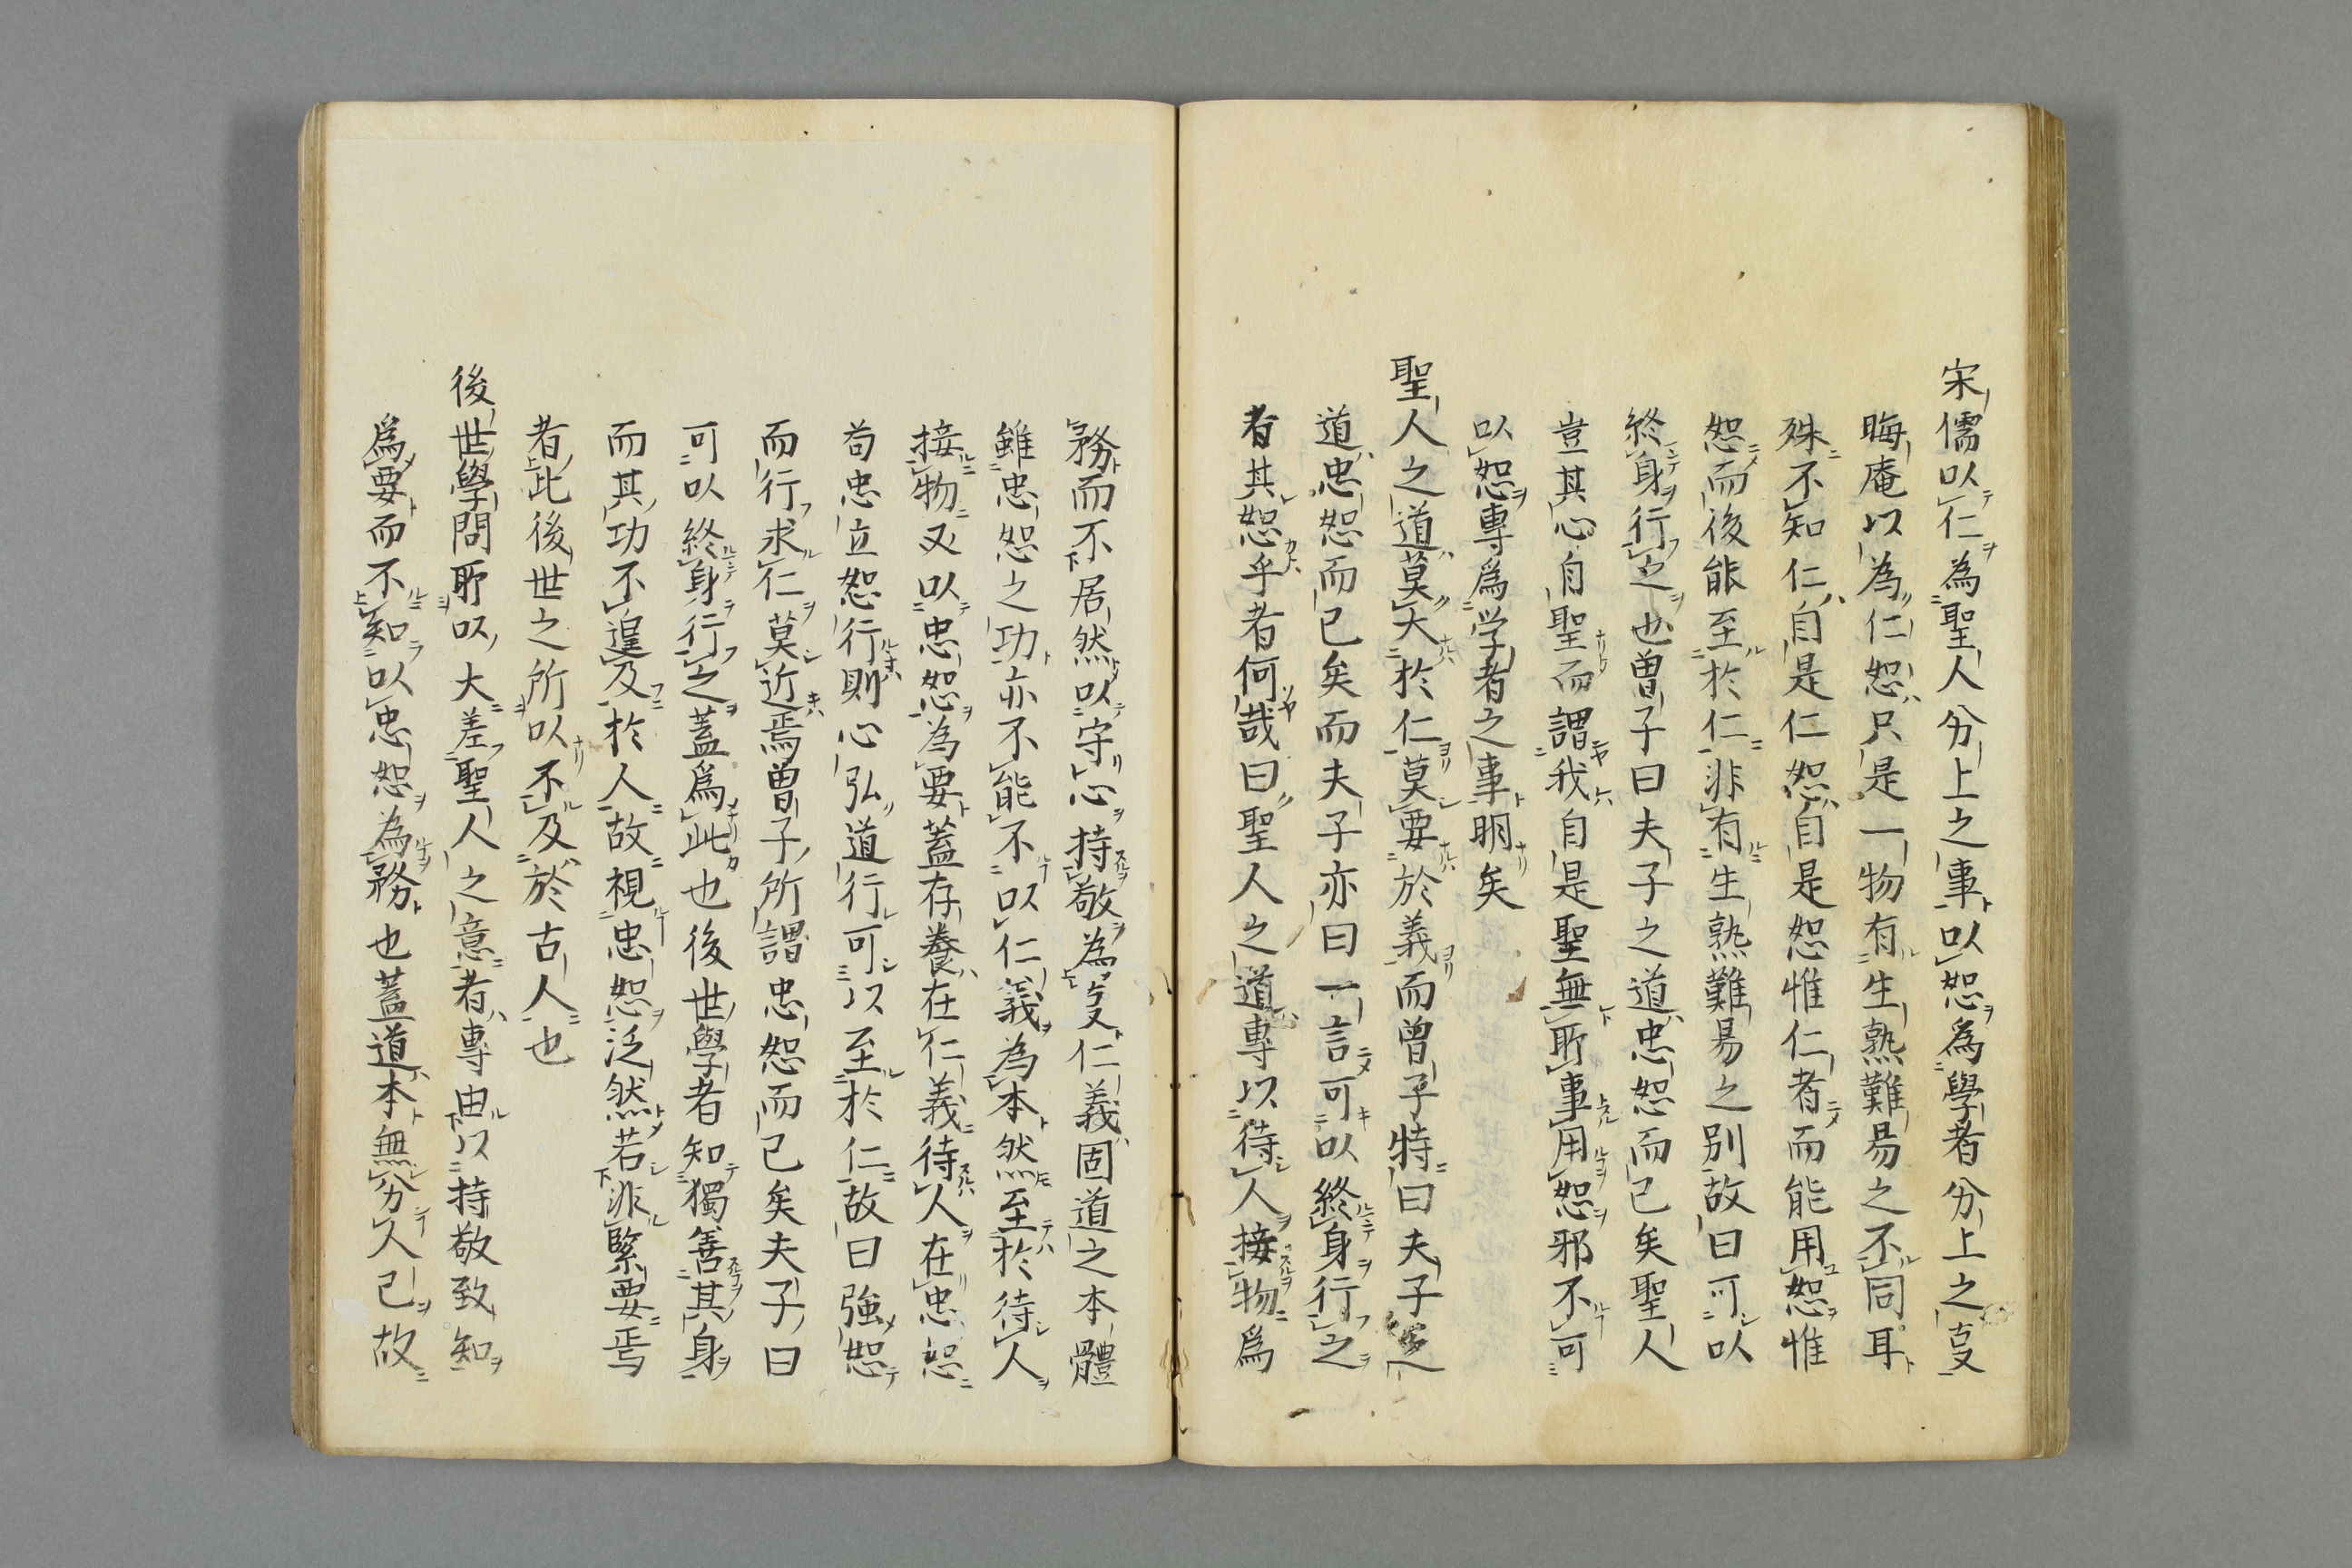 宋儒以仁為聖人分上之事以恕為學者分上之㕝
晦庵以為仁恕只是一物有生熟難易之不同耳
殊不知仁自是仁恕自是恕惟仁者而能用恕惟
恕而後能至於仁非有生熟難易之別故曰可以
終身行之也曽子曰夫子之道忠恕而已矣聖人
豈其心自聖而謂我自是聖無所事用恕邪不可
以恕專為学者之事明矣
聖人之道莫大於仁莫要於義而曽子特曰夫子之
道忠恕而已矣而夫子亦曰一言可以終身行之
者其恕乎者何哉曰聖人之道專以待人接物爲
務而不居然以守心持敬為㕝仁義固道之本體
雖忠恕之功亦不能不以仁義為本然至於待人
接物又以忠恕為要蓋存養在仁義待人在忠恕
苟忠立恕行則心弘道行可以至於仁故曰強恕
而行求仁莫近焉曽子所謂忠恕而已矣夫子曰
可以終身行之蓋爲此也後世學者知獨善其身
而其功不遑及於人故視忠恕泛然若非緊要焉
者此後世之所以不及於古人也
後世學問所以大差聖人之意者專由以持敬致知
爲要而不知以忠恕為務也蓋道本無分人己故